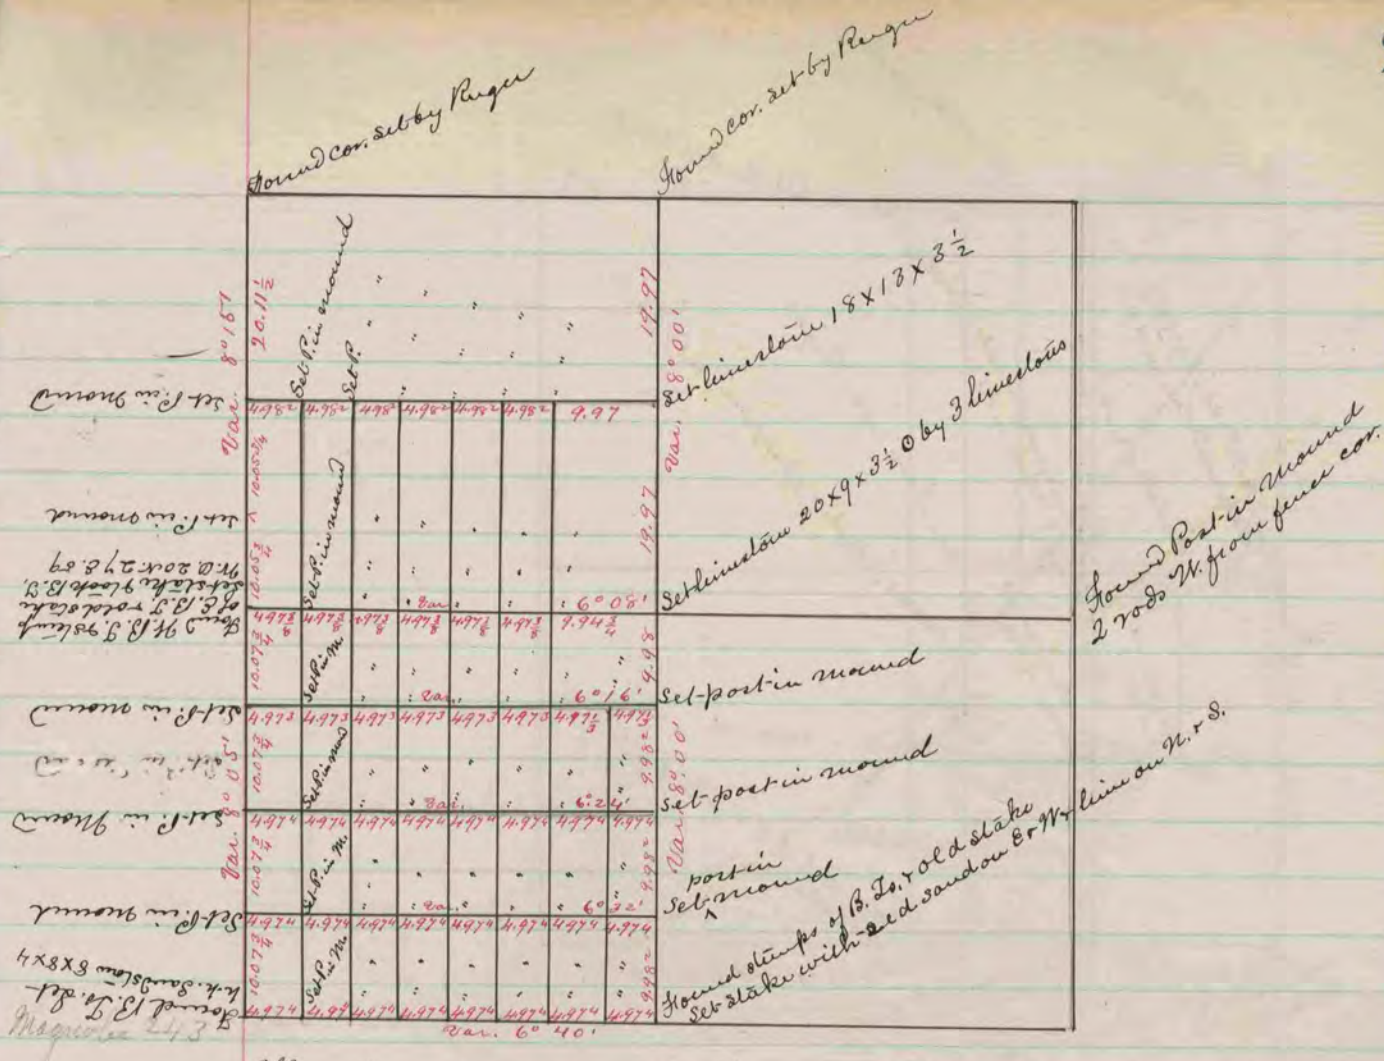 Found cor. set by Ruger
Found cor. set by Ruger
Var. 8° 15'
20.11 1/2
Set P. in mound
" " " " "
Set P. " " " " "
19.97
Var. 8° 00'
Set limestone 18 x 13 x 3 1/2
Set P. in Mound
4.98² 4.98² 4.98² 4.98² 4.98² 4.98² 9.97
10.05 3/4
Set P. in mound
19.97
Set limestone 20 x 9 x 3 1/2 by 3 limestons
Set P. in mound
10.05 3/4
Var. 6° 08'
Set stake
old stake
Found Post in Mound
2 rods W. from fence cor.
4.97 3/8 4.97 3/8 4.97 3/8 4.97 3/8 4.97 3/8 4.97 3/8 9.94 3/4
10.07 3/4
Set P. in M.
Var. 6° 16'
9.98
Set post in mound
Set P. in mound
4.973 4.973 4.973 4.973 4.973 4.973 4.97 1/3 4.97 1/3
Var. 8° 05'
10.07 3/4
Set P. in mound
Var. 6° 24'
9.98²
Var. 8° 00'
Set post in mound
Set P. in Mound
4.974 4.974 4.974 4.974 4.974 4.974 4.974 4.974
10.07 3/4
Set P. in M.
Var. 6° 32'
9.98²
post in
Set ^ mound
Set P. in mound
4.974 4.974 4.974 4.974 4.974 4.974 4.974 4.974
10.07 3/4
Set P. in M.
9.98²
Found stumps of B. Ts. & old stake
Set stake with sand on E & W & line on N. & S.
Found B. Ts. Set
Sandstone 8x8x4
4.974 4.97 4.974 4.974 4.974 4.974 4.974 4.974
Var. 6° 40'
Magnolia 243